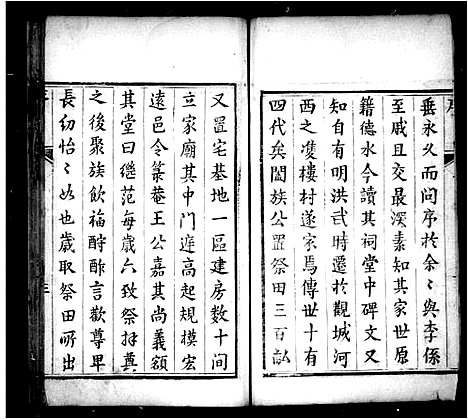 垂永久而问序於余〻與李係
至戚且交最深素知其家世原
籍德水今讀其祠堂中碑文又
知自有明洪武時遷於觀城河
西之凄樓村遂家焉傳世十有
四代矣闔族公置祭田三百畝
又置宅基地一區建房數十間
立家廟其中門逵高起規模宏
遠邑令築菴王公嘉其尚義額
其堂曰繼范每歲六致祭拜奠
之後聚族飲福酧酢言歡尊卑
長幼怡〻如也歲取祭田所出